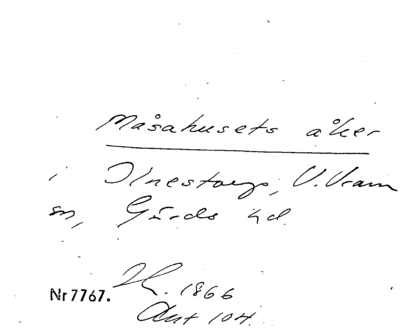 Måsahusets åker
i Ilnestorp, V. Vram
sn, Gärds hd.
Nr 7767. 1866
Ant 104.